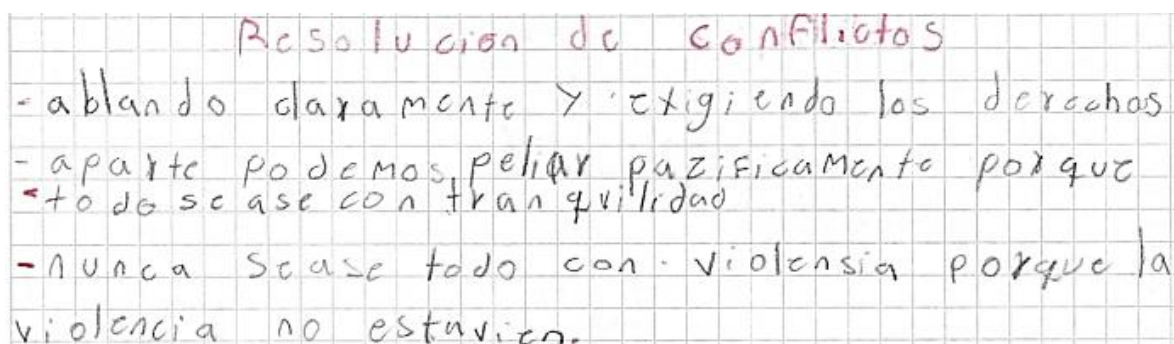 Resolucion de conflictos
- ablando claramente y exigiendo los derechos
- aparte podemos peliar pazificamente porque
- todo se ase con tranquilidad
- nunca sease todo con violensia porque la
violencia no estavien.